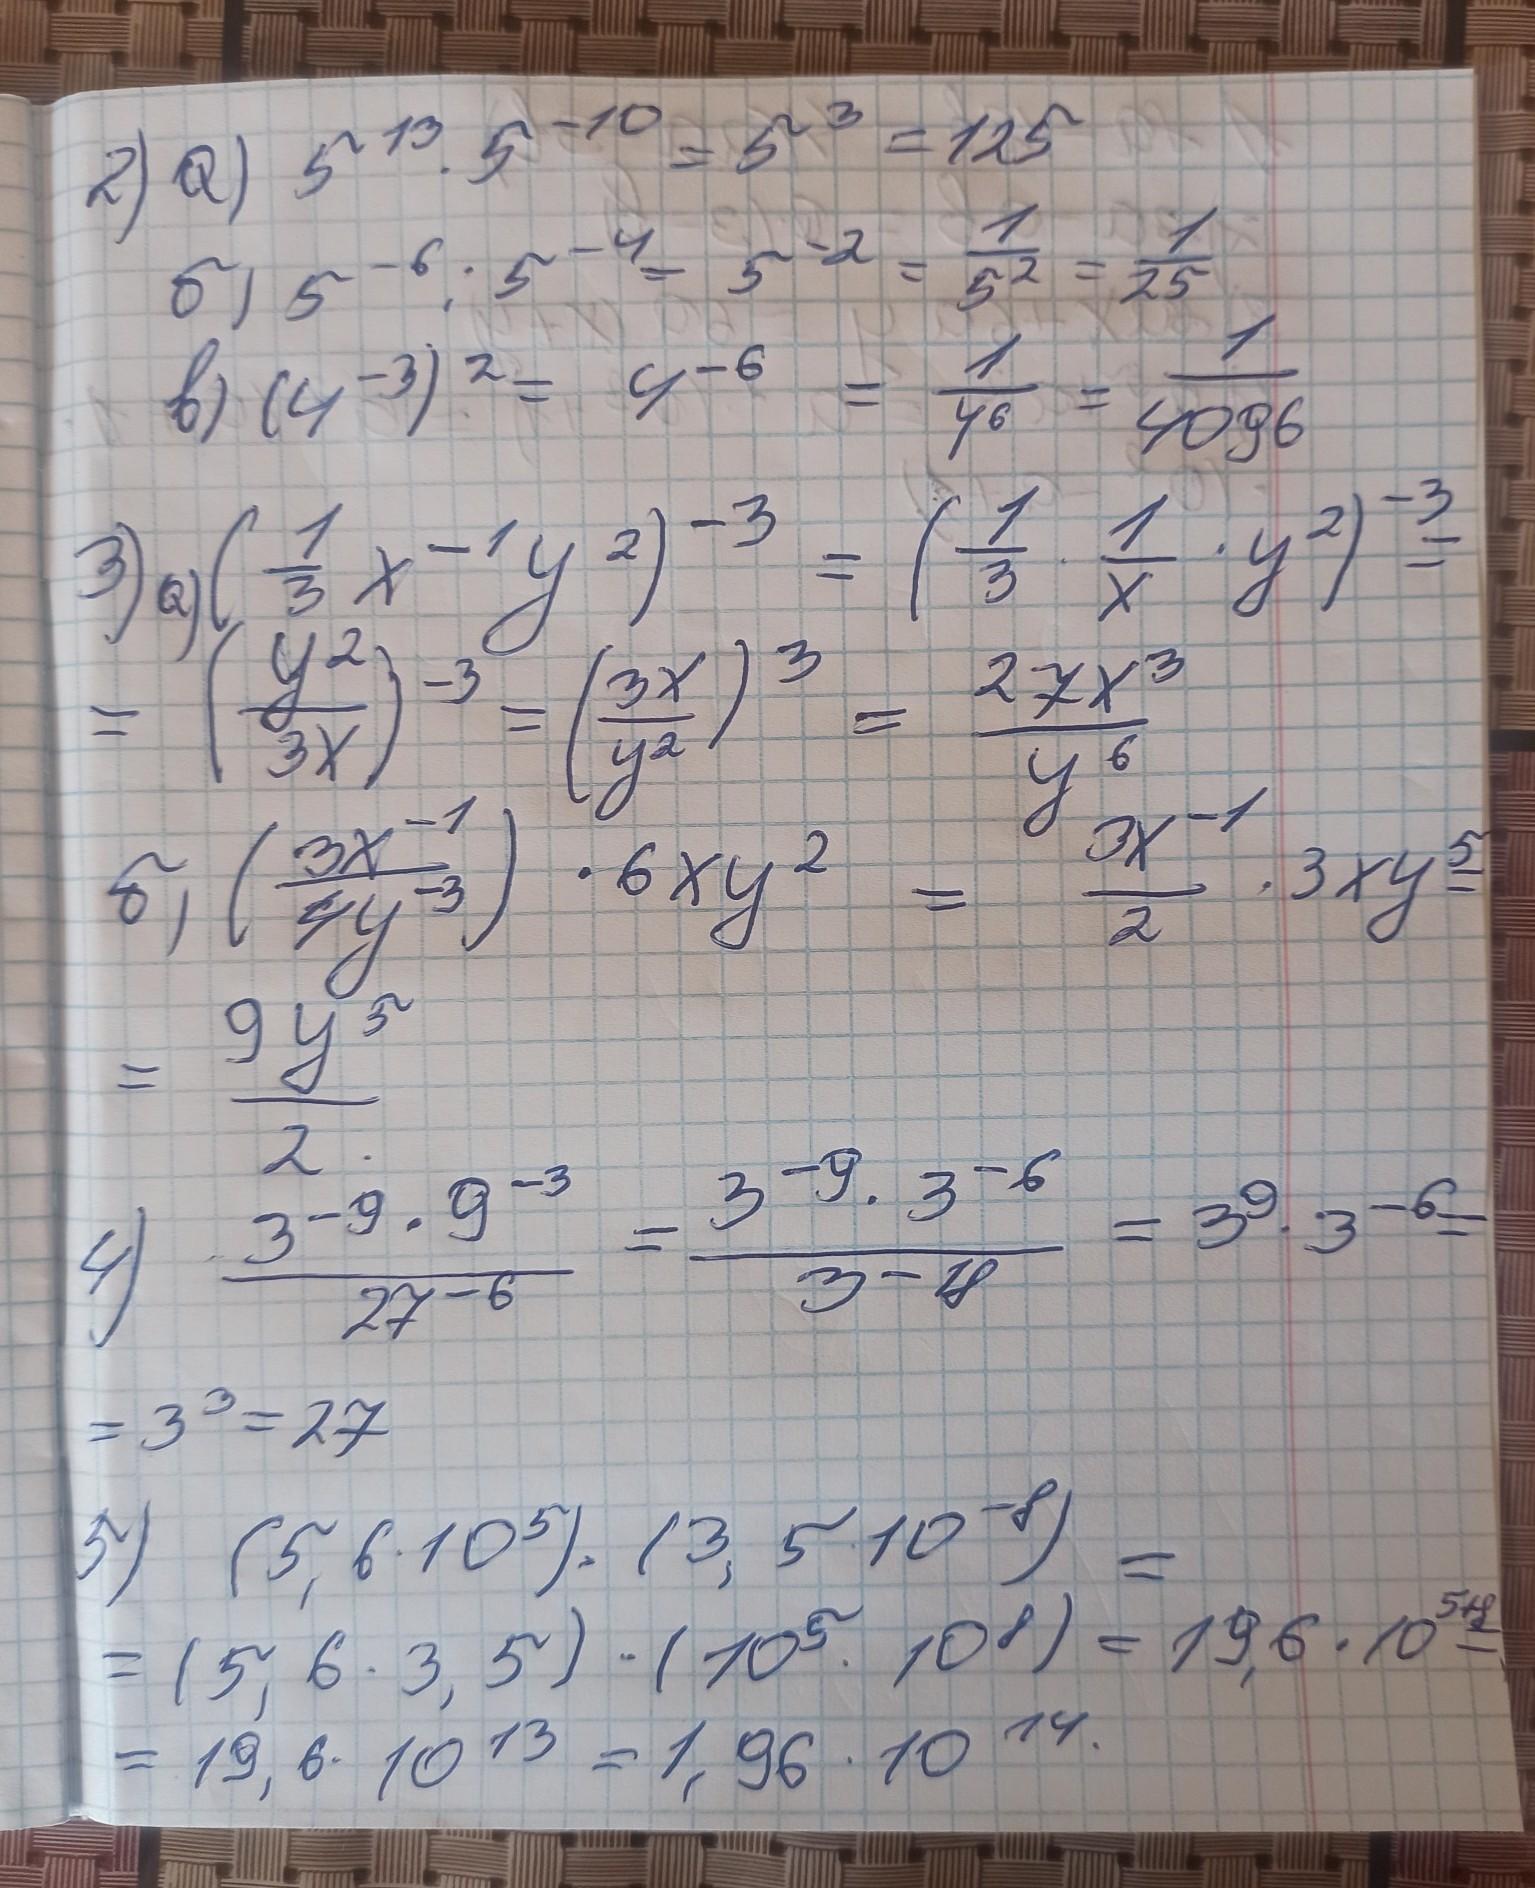 2) а) 5¹³ · 5⁻¹⁰ = 5³ = 125
б) 5⁻⁶ : 5⁻⁴ = 5⁻² = 1/5² = 1/25
в) (4⁻³)² = 4⁻⁶ = 1/4⁶ = 1/4096
3) а) (1/3 x⁻¹y²)⁻³ = (1/3 · 1/x · y²)⁻³ =
= (y²/3x)⁻³ = (3x/y²)³ = 27x³/y⁶
б) (3x⁻¹/4y⁻³) · 6xy² = 3x⁻¹/2 · 3xy⁵ =
= 9y⁵/2.
4) 3⁻⁹ · 9⁻³/27⁻⁶ = 3⁻⁹ · 3⁻⁶/3⁻¹⁸ = 3⁹ · 3⁻⁶ =
= 3³ = 27
5) (5,6 · 10⁵) · (3,5 · 10⁻⁸) =
= (5,6 · 3,5) · (10⁵ · 10⁸) = 19,6 · 10⁵⁺⁸ =
= 19,6 · 10¹³ = 1,96 · 10¹⁴.